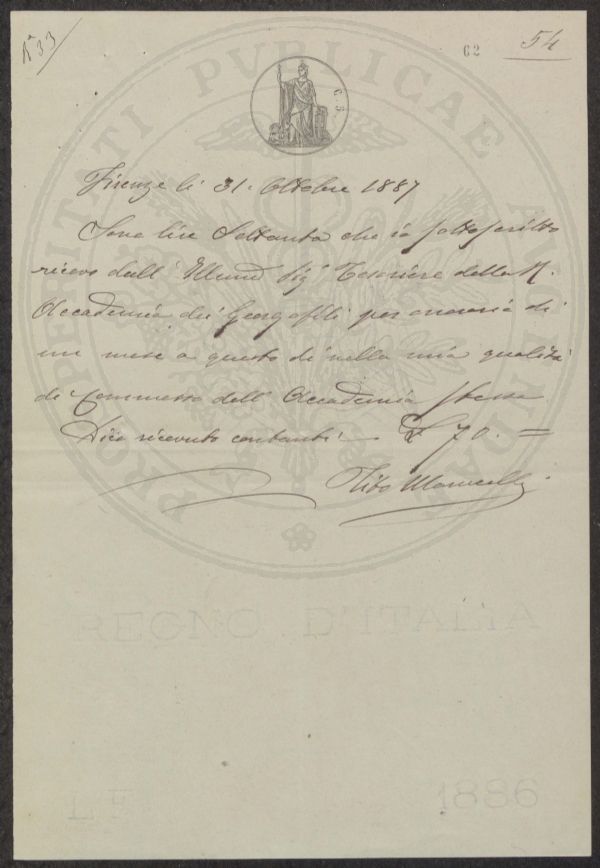 N° 33
62
54
PROSPERITATI PVBLICAE AVGENDAE
C. 5.
Firenze li 31. Ottobre 1887
Sono lire Settanta che io sottoscritto
ricevo dall' Illmo Sig. Tesoriere della R.
Accademia dei Georgofili per onorari di
un mese a questo dì nella mia qualità
di Commesso dell' Accademia stessa.
Dico ricevuto contanti £ 70. =
Tito
REGNO D'ITALIA
L F
1886